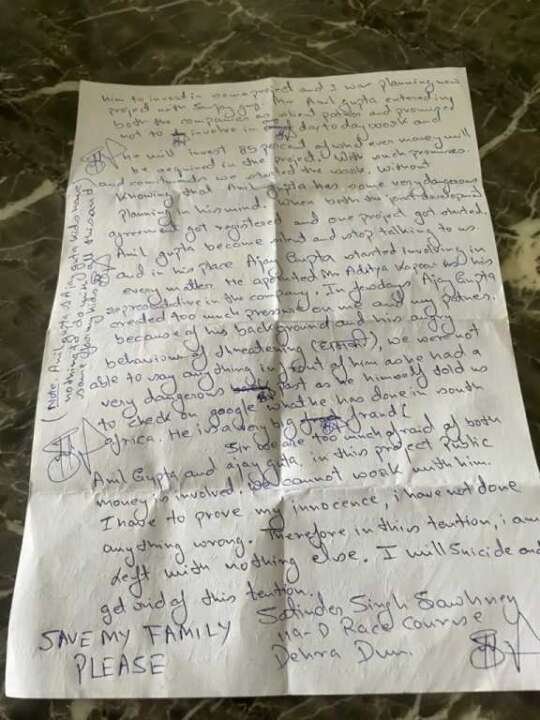 him to invest in some project and I was planning new
project with Sanjay garg. Mr Anil gupta entered in
both the companies as silent partner and promised
not to involve in day to day work and
He will invest 85 percent of what ever money will
be required in the project. With such promises
and commitments we started the work, without
knowing that Anil Gupta has some very dangerous
planning in his mind. When both the development
agreement got registered and one project got started.
Anil gupta become silent and stop talking to us.
and in his place Ajay Gupta started involving in
every matter. He appointed Mr Aditya Kapoor as his
representative in the company. In few days Ajay Gupta
created too much pressure on me and my partners.
because of his background and his angry
behaviour of threatening, we were not
able to say anything in front of him as he had a
very dangerous past as he himself told us
to check on google what he has done in south
africa. He is a very big fraud (
Sir we are too much afraid of both
Anil Gupta and ajay gupta. in this project Public
money is involved. We cannot work with him.
I have to prove my innocence, i have not done
anything wrong. Therefore in this tention, i am
left with nothing else. I will suicide and
get end of this tention.
Satinder Singh Sawhney
119-D Race Course
Dehra Dun.
SAVE MY FAMILY
PLEASE
(Note: Anil gupta & Ajay gupta kids have
nothing to do with all this and
same for my kids